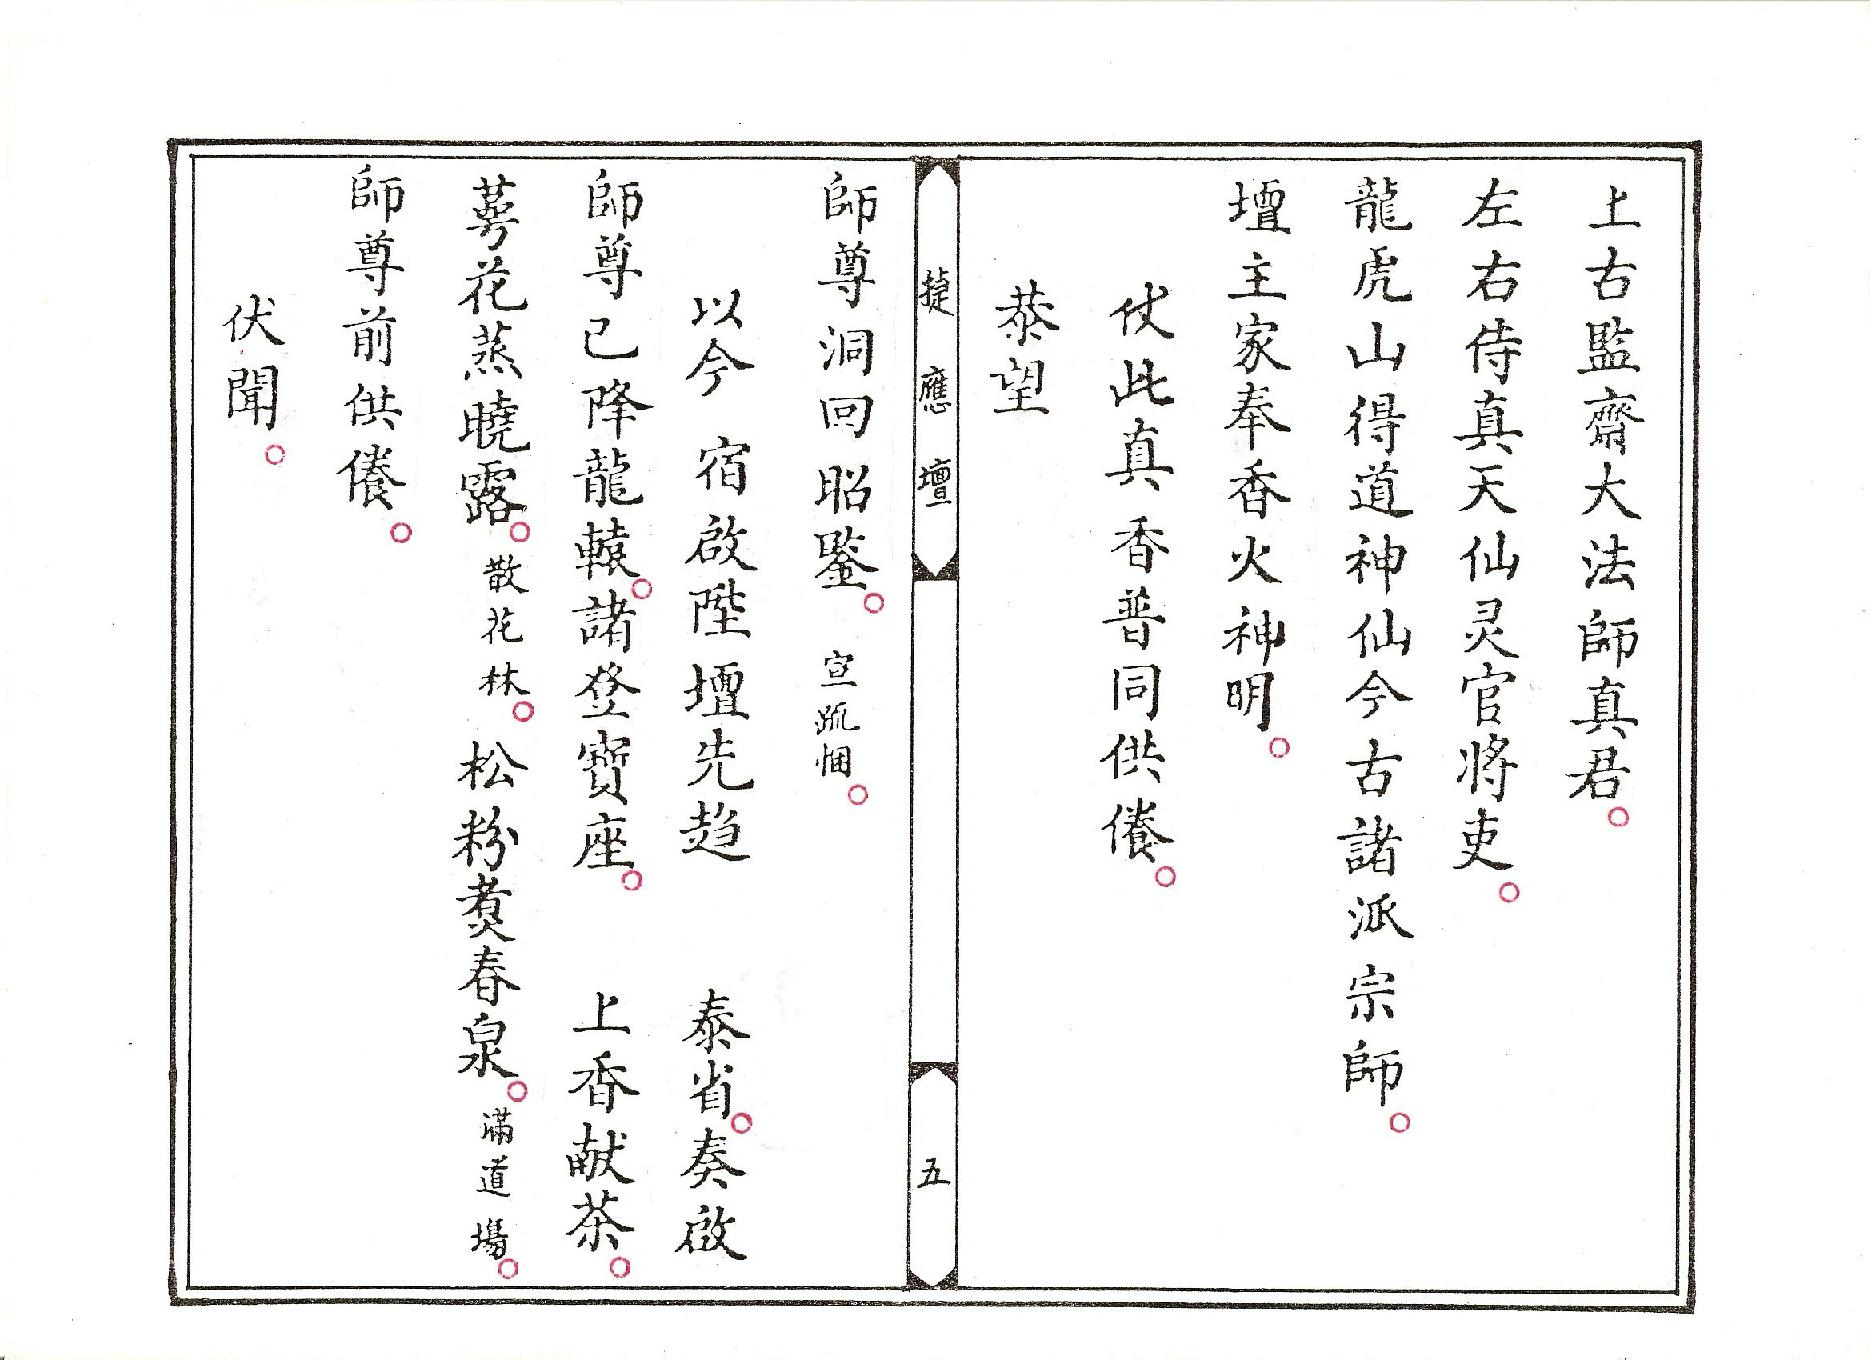 上古監齋大法師真君。
左右侍真天仙灵官將吏。
龍虎山得道神仙今古諸派宗師。
壇主家奉香火神明。
仗此真香普同供養。
恭望
捷應壇
五
師尊洞回昭鑒。宣疏悃。
以今 宿啟陞壇先趋 泰省。奏啟
師尊已降龍轅。諸登寶座。 上香献茶。
萼花蒸曉露。散花林。松粉煑春泉。滿道場。
師尊前供養。
伏聞。